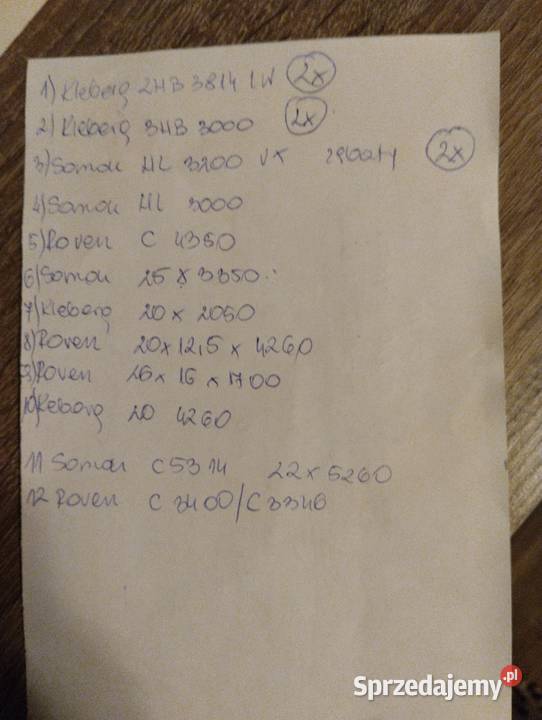 1) Kleberg 2HB 3814 LW 2x
2) Kleberg 3HB 3000 2x
3) Samou HL 3200 zębaty 2x
4) Samou HL 3000
5) Roven C 4350
6) Samou 25 x 3350
7) Kleberg 20 x 2050
8) Roven 20 x 12,5 x 4260
9) Roven 26 x 16 x 1700
10) Kleberg 20 4260
11 Samou C5314 22 x 5260
12 Roven C 3400/C3346
Sprzedajemy.pl